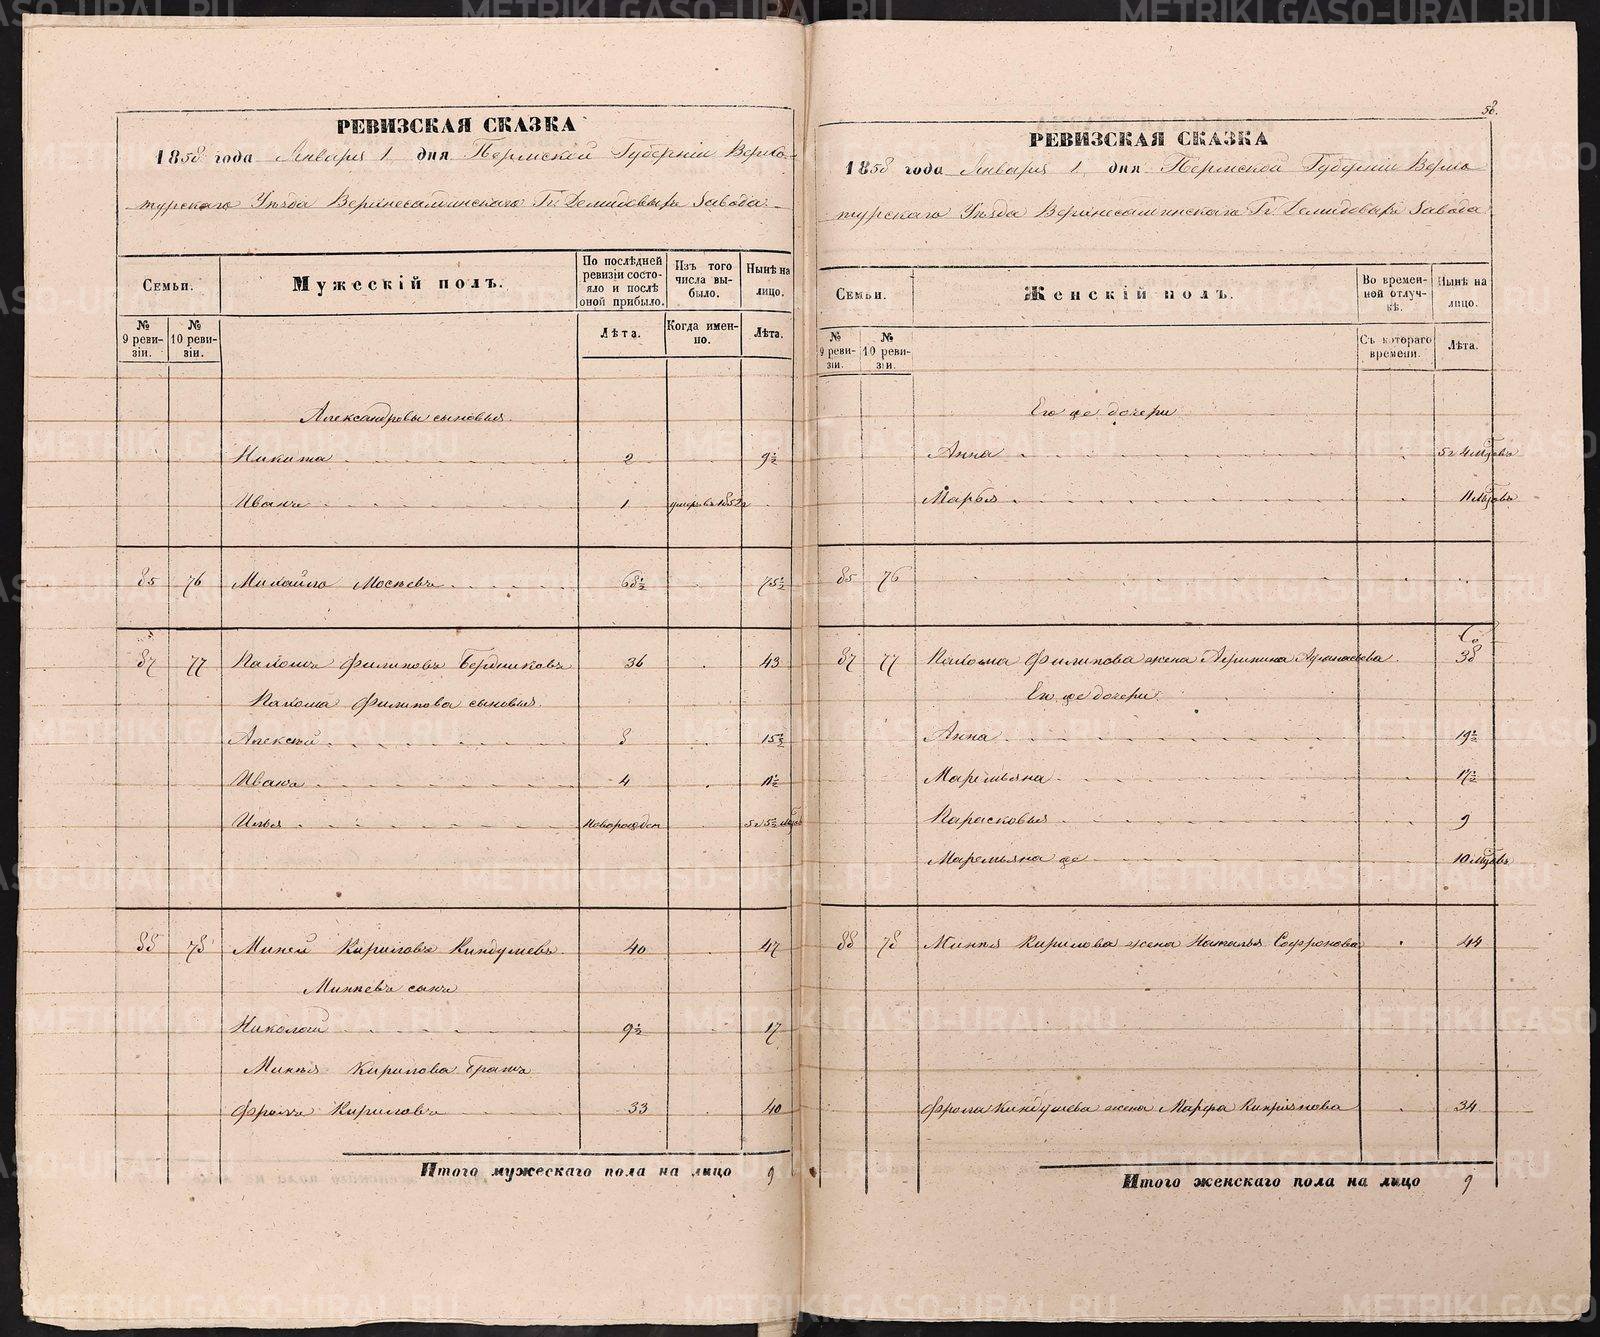 РЕВИЗСКАЯ СКАЗКА
1858 года Января 1 дня Пермской Губерніи Верхо-
турскаго Уѣзда Верхнесалдинскаго Гг. Демидовыхъ Завода
Семьи.
Мужескій полъ.
По послѣдней ревизіи состояло и послѣ оной прибыло.
Изъ того числа выбыло.
Нынѣ на лицо.
№ 9 ревизіи.
№ 10 ревизіи.
Лѣта.
Когда именно.
Лѣта.
Александровы сыновья
Никита 2 9½
Иванъ 1 умеръ въ 1852 г
85 76 Михайло Мосѣевъ 68½ 75½
87 77 Пахомъ Филиповъ Бердниковъ 36 43
Пахома Филипова сыновья
Алексѣй 8 15½
Иванъ 4 11½
Илья новорожден 5 г 5½ мѣс
88 78 Миней Кириловъ Киндушевъ 40 47
Минѣевъ сынъ
Николай 9½ 17
Минѣя Кирилова братъ
Фролъ Кириловъ 33 40
Итого мужескаго пола на лицо 9
58.
РЕВИЗСКАЯ СКАЗКА
1858 года Января 1 дня Пермской Губерніи Верхо-
турскаго Уѣзда Верхнесалдинскаго Гг. Демидовыхъ Завода
Семьи.
Женскій полъ.
Во временной отлучкѣ.
Нынѣ на лицо.
№ 9 ревизіи.
№ 10 ревизіи.
Съ котораго времени.
Лѣта.
Его же дочери
Анна 5 г 4 мѣсѣцовъ
Марья 11 мѣсѣцовъ
85 76
87 77 Пахома Филипова жена Агрипина Афанасьева 38
Его же дочери
Анна 19½
Маремьяна 17½
Парасковья 9
Маремьяна же 10 мѣсѣцовъ
88 78 Минѣя Кирилова жена Наталья Софронова 44
Фрола Киндушева жена Марфа Кипріянова 34
Итого женскаго пола на лицо 9
METRIKI.GASO-URAL.RU